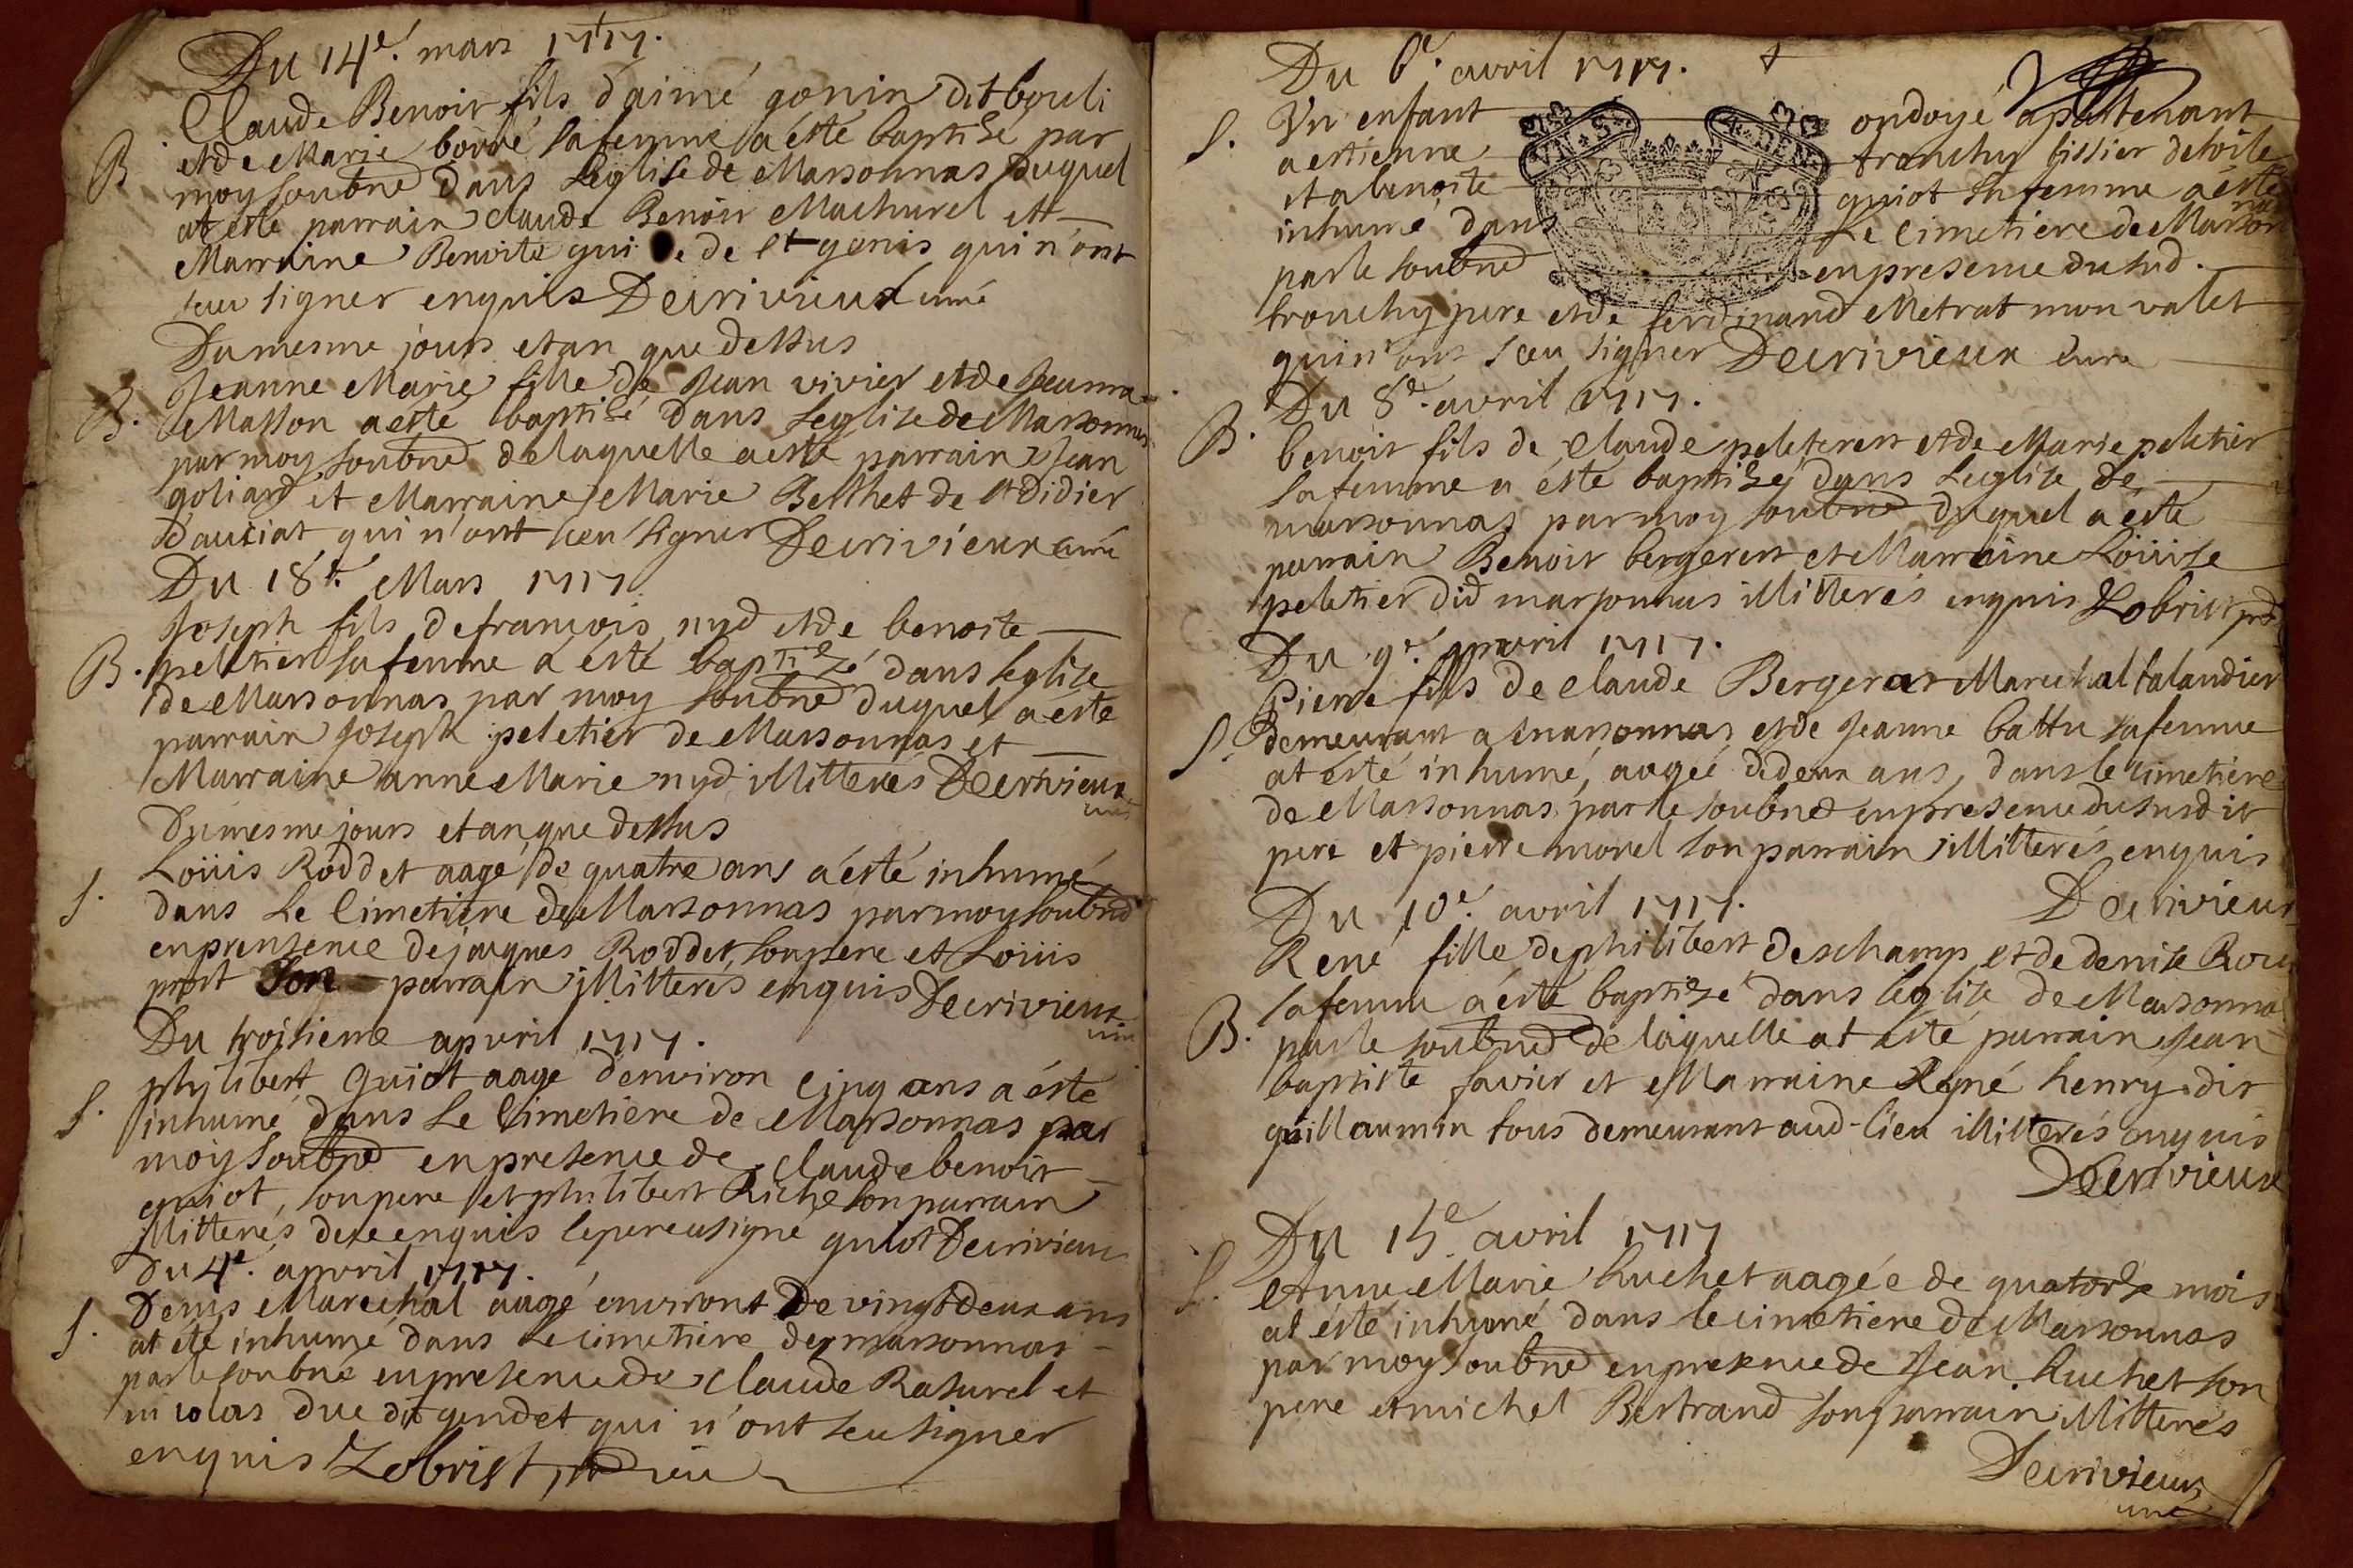 Du 14e. mars 1717.
Claude Benoit fils d'aimé gonin dit bouli
B. et de Marie borré sa femme a esté baptisé par
moy soubné dans Léglise de Marsonnas Duquel
at esté parrain Claude Benoit Machurel et
Marraine Benoite gui e de st genis qui n'ont
sceu signer enquis Decrivieux curé
Du mesme jours et an que dessus
Jeanne Marie fille de Jean vivier et de Jeanne
B. Masson a esté baptisé dans Leglise de Marsonnas
par moy soubné de laquelle a esté parrain Jean
goliard et Marraine Marie Berthet de st Didier
d'auciat qui n'ont sceu signer Decrivieux curé
Du 18e. Mars 1717
Joseph fils de francois nyd et de benoite
B. peletier sa femme a esté baptizé dans leglise
de Marsonnas par moy soubné duquel a esté
parrain Joseph peletier de Marsonnas et
Marraine anne Marie nyd illitterés Decrivieux
curé
Du mesme jours et an que dessus
Loüis Roddet aagé de quatre ans a ésté inhumé
S. dans Le Cimetiere de Marsonnas par moy soubné
en prensence de jacques Roddet son pere et Loüis
prost son parrain illitterés enquis Decrivieux
curé
Du troisieme apvril 1717.
philibert Guiot aagé d'environ cinq ans a ésté
S. inhumé dans Le Cimetiere de Marsonnas par
moy soubné en presence de claude benoit
guiot, son pere et philibert Riche son parrain
illitterés de ce enquis le pere a signé guiot Decrivieux
Du 4e. apvril 1717.
Denis Marechal aagé environt De vingt deux ans
S. at esté inhumé dans Le cimetiere de marsonnas
par le soubné en presence de claude Rasurel et
nicolas due dit gendet qui n'ont sceu signer
enquis Lobrist
Du 6e. avril 1717.
S. Vn enfant ondoyé apartenant
a estienne tronchy tissier de toile
et a benoite guiot sa femme a ésté
inhumé dans Le Cimetiere de Marson
nas
par le soubné en presence du sud.
VN·S· 4·DEN·
tronchy pere et de ferdinand Metrat mon valet
qui n'ont sceu signer Decrivieux Curé
Du 8e. avril 1717.
B. benoit fils de Claude peleterat et de Marie peletier
sa femme a ésté baptizé dans Leglise de
marsonnas par moy soubné duquel a esté
parrain Benoit bergerat et Marraine Loüise
peletier dud marsonnas illitterés enquis Lobrist
Du 9e. apvril 1717.
Pierre fils de claude Bergerat Marechal talandier
S. demeurant a marsonnas et de Jeanne battu sa femme
at esté inhumé, aagé de deux ans, dans le cimetiere
de Marsonnas par le soubné en presence du susdit
pere et pierre morel son parrain illitterés enquis
Decrivieux
Du 10e. avril 1717.
René fille de philibert deschamp et de denise Rou
sa femme a ésté baptizé dans léglise de Marsonna
B. par le soubné de laquelle at esté parrain Jean
baptiste favier et Marraine René henry dit
guillaumin tous demeurant aud-lieu illitterés enquis
Decrivieux
Du 15e. avril 1717
S. Anne Marie huchet aagée de quatorse mois
at ésté inhumé dans le cimetiere de Marsonnas
par moy soubné en presence de Jean huchet son
pere et michel Bertrand son parrain illitterés
Decrivieux
curé